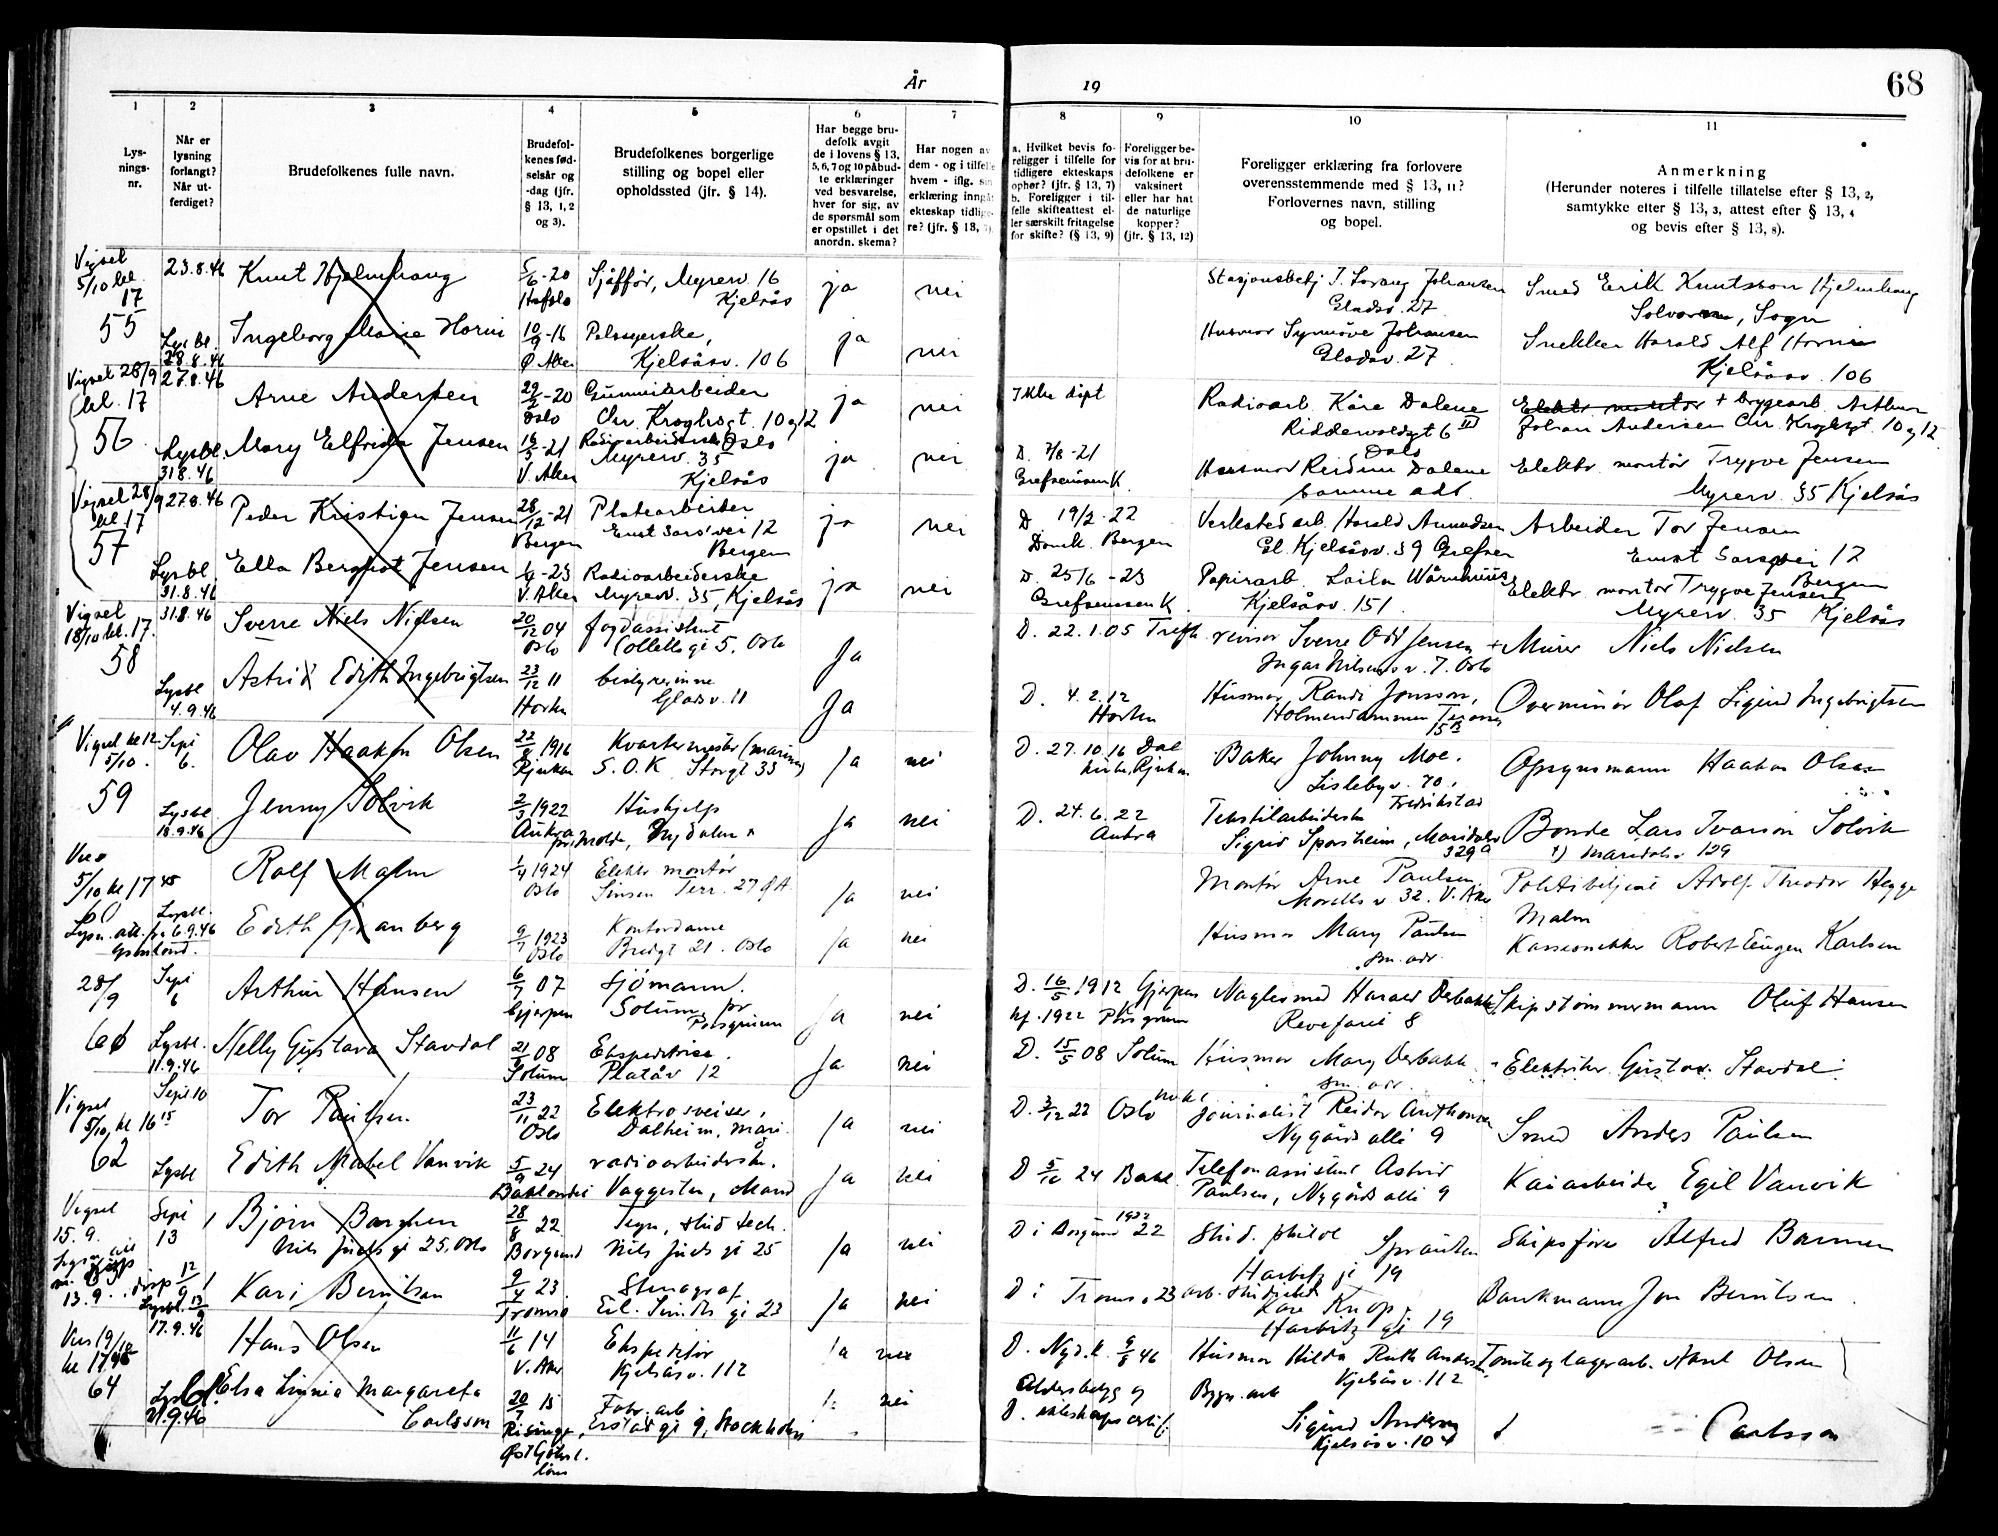 År
19
68
1 2 3 4 5 6 7 8 9 10 11
Lys-
nings-
nr.
Når er
lysning
forlangt?
Når ut-
ferdiget?
Brudefolkenes fulle navn.
Brudefol-
kenes fød-
selsår og
-dag (jfr.
§ 13, 1, 2
og 3).
Brudefolkenes borgerlige
stilling og bopel eller
opholdssted (jfr. § 14).
Har begge bru-
defolk avgit
de i lovens § 13,
5, 6, 7 og 10 påbud-
te erklæringer
ved besvarelse,
hver for sig, av
de spørsmål som
er opstillet i det
anordn. skema?
Har nogen av
dem - og i tilfelle
hvem - iflg. sin
erklæring inngått
ekteskap tidlige-
re? (jfr. § 13,
a. Hvilket bevis fo-
religger i tilfelle for
tidligere ekteskaps
ophør? (jfr. § 13, 7)
b. Foreligger i til-
felle skifteattest el-
ler særskilt fritagelse
for skifte? (§ 13, 9)
Foreligger be-
vis for at bru-
defolkene er
vaksinert
eller har hat
de naturlige
kopper?
(jfr. § 13, 12)
Foreligger erklæring fra forlovere
overensstemmende med § 13, 11?
Forlovernes navn, stilling
og bopel.
Anmerkning
(Herunder noteres i tilfelle tillatelse efter § 13, 2,
samtykke efter § 13, 3, attest efter § 13, 4
og bevis efter § 13, 8).
Vigsel
5/10 kl.
17
55
23.8.46
Knut Hjelmhaug
5/6-20
Sjåfför, Myrerv 16
Kjelsås
ja
nei
Johansen
Gladsv. 27
Smed Erik Knutsson Hjelmhaug
Solvorn, Sogn
Lysbl.
28.8.46
Ingeborg Marie Hornu
10/9-16
Ø. Aker
Pelssyerske,
Kjelsåsv. 106
ja
nei
Husmor Synnöve Johansen
Gladsv. 27
Snekker Harald Alf
Kjelsåsv. 106
Vigsel 28/9
kl. 17
56
27.8.46
Arne Andersen
29/2-20
Oslo
Gummiarbeider
Chr. Kroghsgt. 10 og 12
Oslo
ja
nei
Ikke döpt
Radioarb. Kåre Dalene
Riddervoldsgt 6 III
Oslo
Elektr montör + bryggearb. Arthur
Johan Andersen Chr. Kroghsgt. 10 og 12
Lysbl.
31.8.46
Mary Elfrida Jensen
16/5-21
V. Aker
Radioarbeiderske
Myrerv. 35
Kjelsås
ja
nei
D. 7/8-21
Grefsen K.
Husmor Reidun Dalene
samme adr.
Elektr. montör Trygve Jensen
Myrerv. 35 Kjelsås
Vigsel 28/9
kl. 17
57
27.8.46
Peder Kristian Jensen
28/12-21
Bergen
Platearbeider
Ernst Sars' vei 12
Bergen
ja
nei
D. 19/2-22
Domk. Bergen
Verkstedarb. Harald Amundsen
Gl. Kjelsåsv. 39 Grefsen
Arbeider Tor Jensen
Ernst Sarsvei 12
Bergen
Lysbl.
31.8.46
Ella Bergljot Jensen
V. Aker
Radioarbeiderske
Myrerv. 35, Kjelsås
ja
nei
D. 25/6-23
Papirarb. Laila
Kjelsåsv. 151.
Elektr. montör Trygve Jensen
Myrerv. 35 Kjelsås
Vigsel
18/10 kl. 17.
58
31.8.46
Sverre Niels Nielsen
20/12 04
Oslo
fogdassistent
Collettsgt 5. Oslo
Ja
D. 22.1.05
revisor Sverre Odd Jensen
v. 7. Oslo
+ Murer Niels Nielsen
Lysbl
4.9.46
Astrid Edith Ingebrigtsen
23/12 11
Horten
bestyrerinne
Gladsv. 11
Ja
D. 4.2.12
Horten
Husmor Randi Jonsson,
Holmendammen Terrasse
15 B
Overminör Olaf Sigurd Ingebrigtsen
Vigsel kl 12
5/10.
59
Sept
6.
Olav Haakon Olsen
22/8 1916
Rjukan
Kvartermester (marinen)
S.O.K. Storgt 33
Ja
nei
D. 27.10.16 Dal
kirke, Rjukan
Baker Johnny Moe.
Lislebyv. 70,
Fredrikstad
Opsynsmann Haakon Olsen
Lysbl.
Jenny Solvik
2/3 1922
Aukra
pr. Molde,
Hushjelp
Nydalen
Ja
nei
D. 24.6.22
Aukra
Tekstilarbeiderske
Sigrid Sporsheim, Maridalsv
329 a
Bonde Lars Ivarson Solvik
Maridalsv 129
5/10 kl 17 45
60
Rolf Malm
1/4 1924
Oslo
Elektr montör
Sinsen Terr. 27 Ø.A.
Ja
nei
Montör Arne Paulsen
Morells v 32. V. Aker
Politibetjent Adolf Theodor Hegge
Malm
Lysn. att. fra
Grönland.
Lysbl.
6.9.46
Edith Granberg
9/7 1923
Oslo
Kontordame
Bredgt 21. Oslo
Ja
nei
Husmor Mary Paulsen
sm. adr.
Robert Eugen Karlsen
28/9
61
Sept
6
Arthur Hansen
6/7 07
Gjerpen
Sjömann.
Solum pr
Porsgrunn
Ja
nei
D. 16/5 1912 Gjerpen
kf. 1922 Porsgrunn
Naglesmed Harald Verbakk
Revefaret 8
Skipstömmermann Oluf Hansen
Lysbl.
11.9.46
Nelly Gustava Stavdal
08
Solum
Ekspeditrise.
Platåv 12
Ja
nei
D. 15/5 08 Solum
Husmor Mary Verbakk
sm. adr.
Elektriker Gustav Stavdal
Vigsel
5/10, kl 16 15
62
Sept 10
Tor Paulsen
23/11 22
Oslo
Elektrosveiser,
Dalheim, Mari
Ja
nei
D. 3/12 22 Oslo
Journalist Reidar Anthonsen
Nygårds alle 9
Smed Anders Paulsen
Lysbl
Edith Mabel Vanvik
5/9 24
Baklandet
radioarbeiderske.
Vaggesten, Marid
Ja
nei
D 5/10 24 Bakl.
Telefonassistent Astrid
Paulsen, Nygårds alle 9
Kaiarbeider Egil Vanvik
Vigsel
15.9.
13.9.
Sept
13
Bjørn
Nils Juels gt 25. Oslo
28/8 22
Borgund
Tegn, stud tech.
Nils Juels gt 25
Ja
nei
D i Borgund 1922 22
Stud. philol
Harbitz gt 19
Skipsfører Alfred
Lysbl. 13/9
Kari Berntsen
9/4 23.
Tromsø
Stenograf
Eil. Sundts gt 23
Ja
nei
D i Tromsø 23
Harbitz gt 19
Bankmann Jon Berntsen.
19/10
kl 17 45
64
17.9.46
Hans Olsen
11/6 14
V. Aker
Ekspeditör
Kjelsåsv. 112
Ja
nei
D. Nyd.k. 9/8 46
Husmor Hilda Ruth Andersen
Kjelsåsv. 112
Tomte og lagerarb. Axel Olsen
Lysbl
21.9.46
Elsa Linnea Margareta
Carlsson
20/7 15
Risinge,
Øst Götal.
Fabr. arb
Erstad gt 9, Stockholm
nei
Aldersbevis og
D. ekteskapscertif.
Bygn. arb
Sigurd Andersen
Kjelsåsv. 104
Carlsson